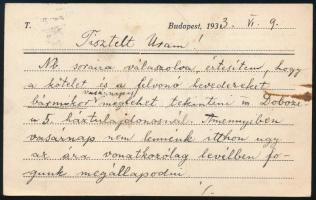 T. Budapest, 1933. VI. 9.
Tisztelt Uram!
Nb. soraira válaszolva értesítem, hogy
a kötelet és a felvonó hevedereket
vasárnap
bármikor megteheti tekinteni a Dobozi
u 5. háztulajdonosnál. Amennyiben
vasárnap nem lennénk itthon ugy
az ára vonatkozólag levélben fo-
gunk megállapodni.